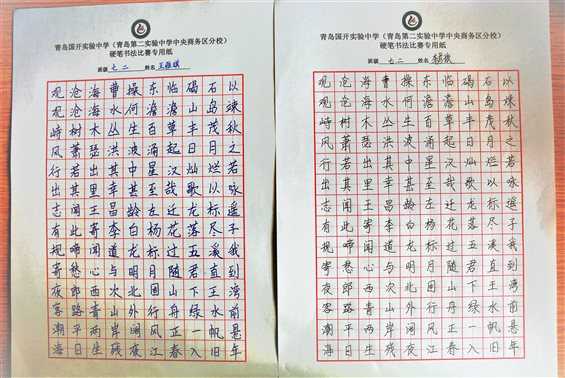 青岛国开实验中学（青岛第二实验中学中央商务区分校）
硬笔书法比赛专用纸
班级 七二 姓名
观沧海曹操东临碣石以
观沧海水何澹澹山岛竦
峙树木丛生百草丰茂秋
风萧瑟洪波涌起日月之
行若出其中星汉灿烂若
出其里幸甚至哉歌以咏
志闻王昌龄左迁龙标遥
有此寄李白杨花落尽子
规啼闻道龙标过五溪我
寄愁心与明月随君直到
夜郎西次北固山下王湾
客路青山外行舟绿水前
潮平两岸阔风正一帆悬
海日生残夜江春入旧年
青岛国开实验中学（青岛第二实验中学中央商务区分校）
硬笔书法比赛专用纸
班级 七二 姓名
观沧海曹操东临碣石以
观沧海水何澹澹山岛竦
峙树木丛生百草丰茂秋
风萧瑟洪波涌起日月之
行若出其中星汉灿烂若
出其里幸甚至哉歌以咏
志闻王昌龄左迁龙标遥
有此寄李白杨花落尽子
规啼闻道龙标过五溪我
寄愁心与明月随君直到
夜郎西次北固山下王湾
客路青山外行舟绿水前
潮平两岸阔风正一帆悬
海日生残夜江春入旧年